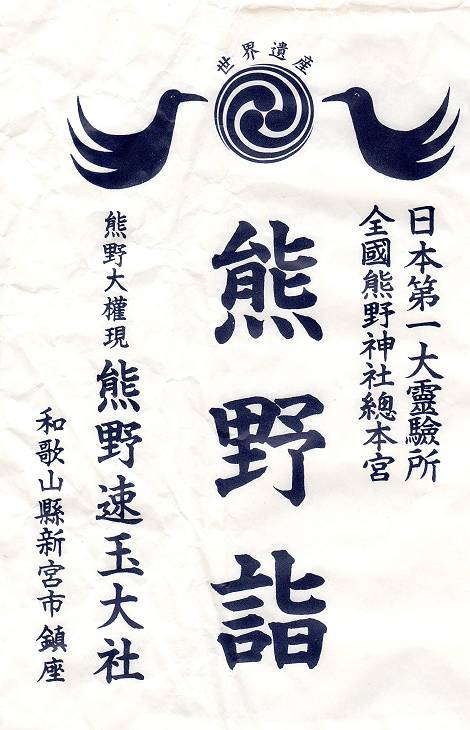 世界遺産
日本第一大靈驗所
全國熊野神社總本宮
熊野詣
熊野大權現 熊野速玉大社
和歌山縣新宮市鎮座